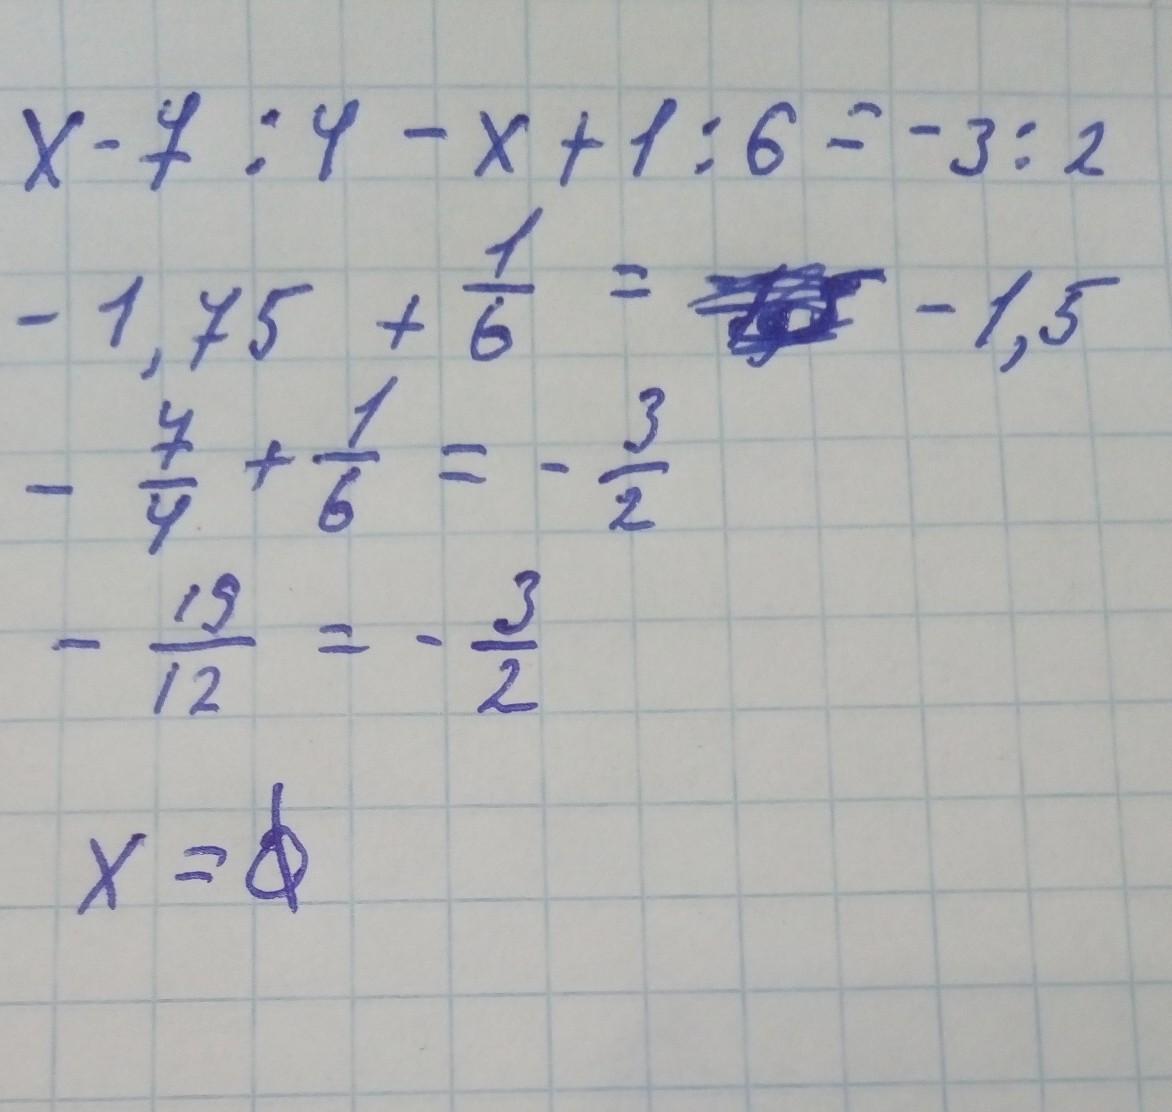 x - 7 : 4 - x + 1 : 6 = -3 : 2
- 1,75 + 1/6 = - 1,5
- 7/4 + 1/6 = - 3/2
- 19/12 = - 3/2
x = ∅